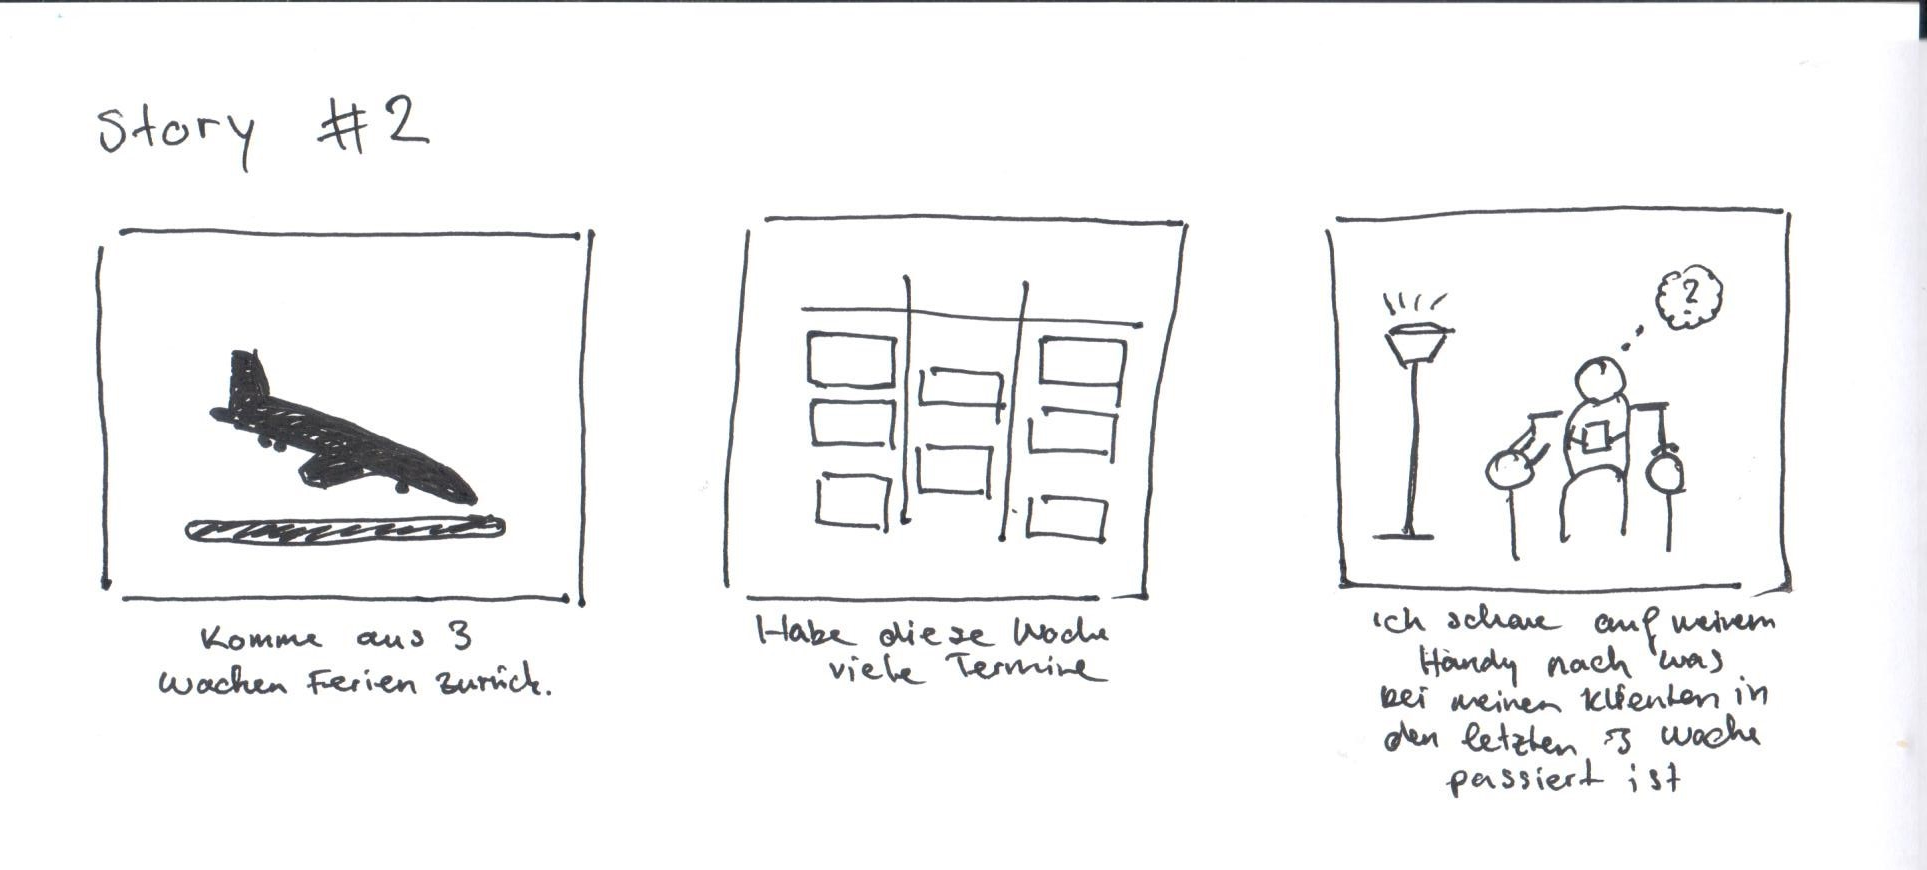 Story #2
Komme aus 3
Wochen Ferien zurück.
Habe diese Woche
viele Termine
?
ich schaue auf meinem
Handy nach was
bei meinen Klienten in
den letzten 3 Woche
passiert ist